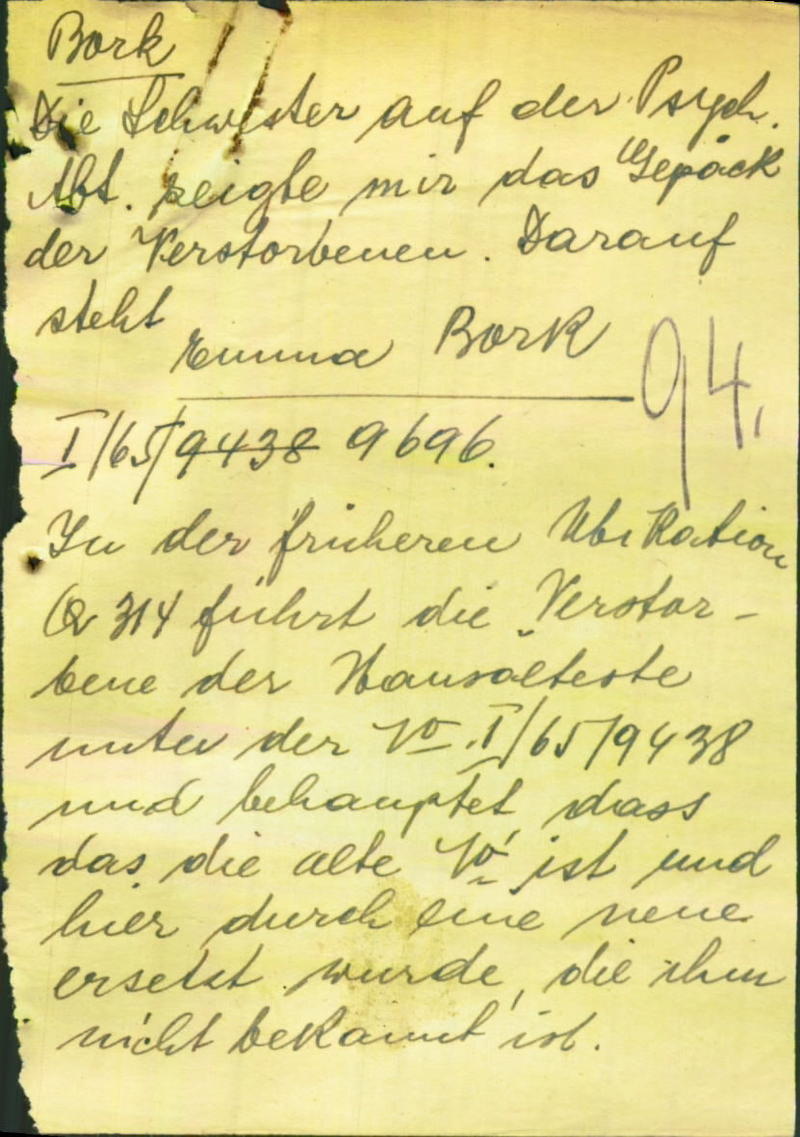 Bork
Die Schwester auf der Psych.
Abt. zeigte mir das Gepäck
der Verstorbenen. Darauf
steht
Emma Bork
94.
I/65/9438 9696.
In der früheren Ubikation
Q 314 führt die Verstor-
bene der Hausälteste
unter der No. I/65/9438
und behauptet, dass
das die alte No ist und
hier durch eine neue
ersetzt wurde, die ihm
nicht bekannt ist.